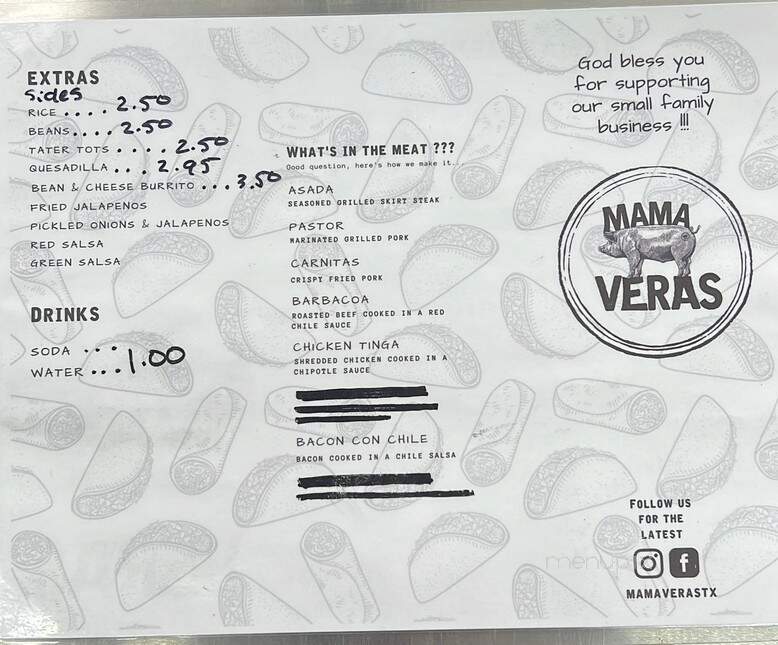 EXTRAS
Sides
RICE .... 2.50
BEANS.... 2.50
TATER TOTS .... 2.50
QUESADILLA ... 2.95
BEAN & CHEESE BURRITO ... 3.50
FRIED JALAPENOS
PICKLED ONIONS & JALAPENOS
RED SALSA
GREEN SALSA
DRINKS
SODA ...
WATER ... 1.00
WHAT'S IN THE MEAT ???
Good question, here's how we make it..
ASADA
SEASONED GRILLED SKIRT STEAK
PASTOR
MARINATED GRILLED PORK
CARNITAS
CRISPY FRIED PORK
BARBACOA
ROASTED BEEF COOKED IN A RED
CHILE SAUCE
CHICKEN TINGA
SHREDDED CHICKEN COOKED IN A
CHIPOTLE SAUCE
BACON CON CHILE
BACON COOKED IN A CHILE SALSA
God bless you
for supporting
our small family
business !!!
MAMA
VERAS
FOLLOW US
FOR THE
LATEST
MAMAVERASTX